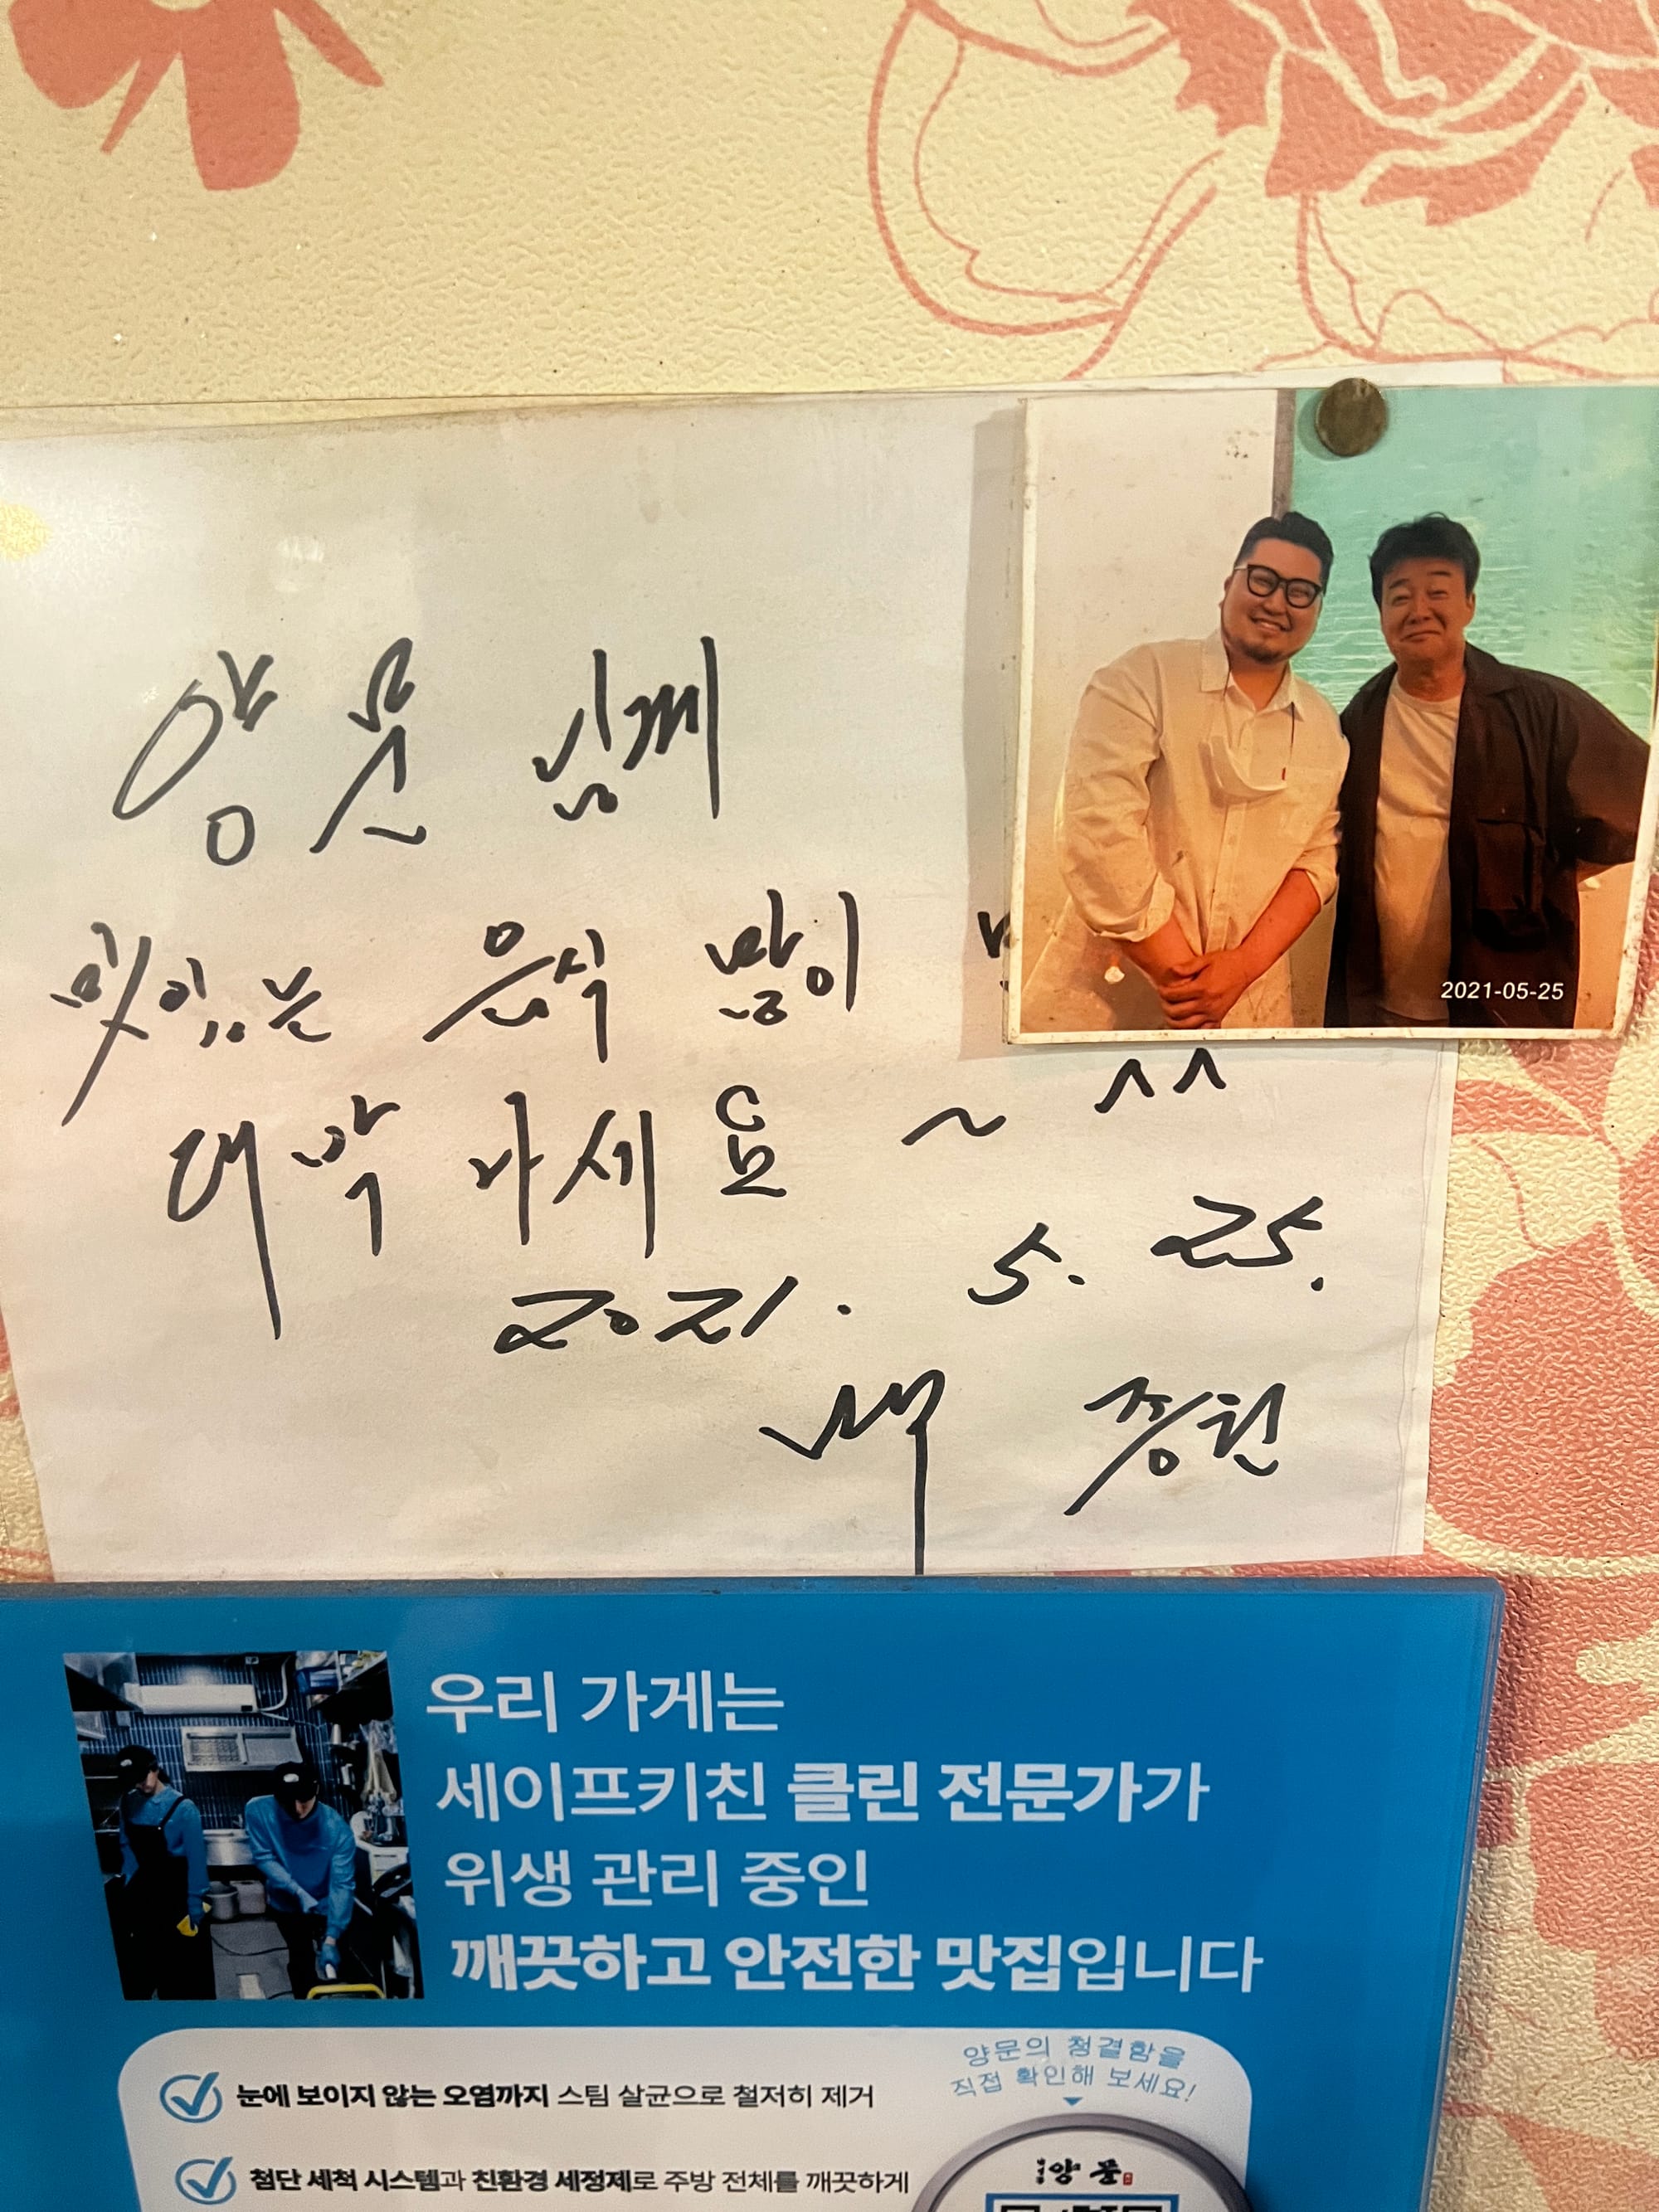 양문 님께
맛있는 음식 많이
대박 나세요 ~ ^^
2021. 5. 25.
백 종원
2021-05-25
우리 가게는
세이프키친 클린 전문가가
위생 관리 중인
깨끗하고 안전한 맛집입니다
눈에 보이지 않는 오염까지 스팀 살균으로 철저히 제거
첨단 세척 시스템과 친환경 세정제로 주방 전체를 깨끗하게
양문의 청결함을
직접 확인해 보세요!
양문